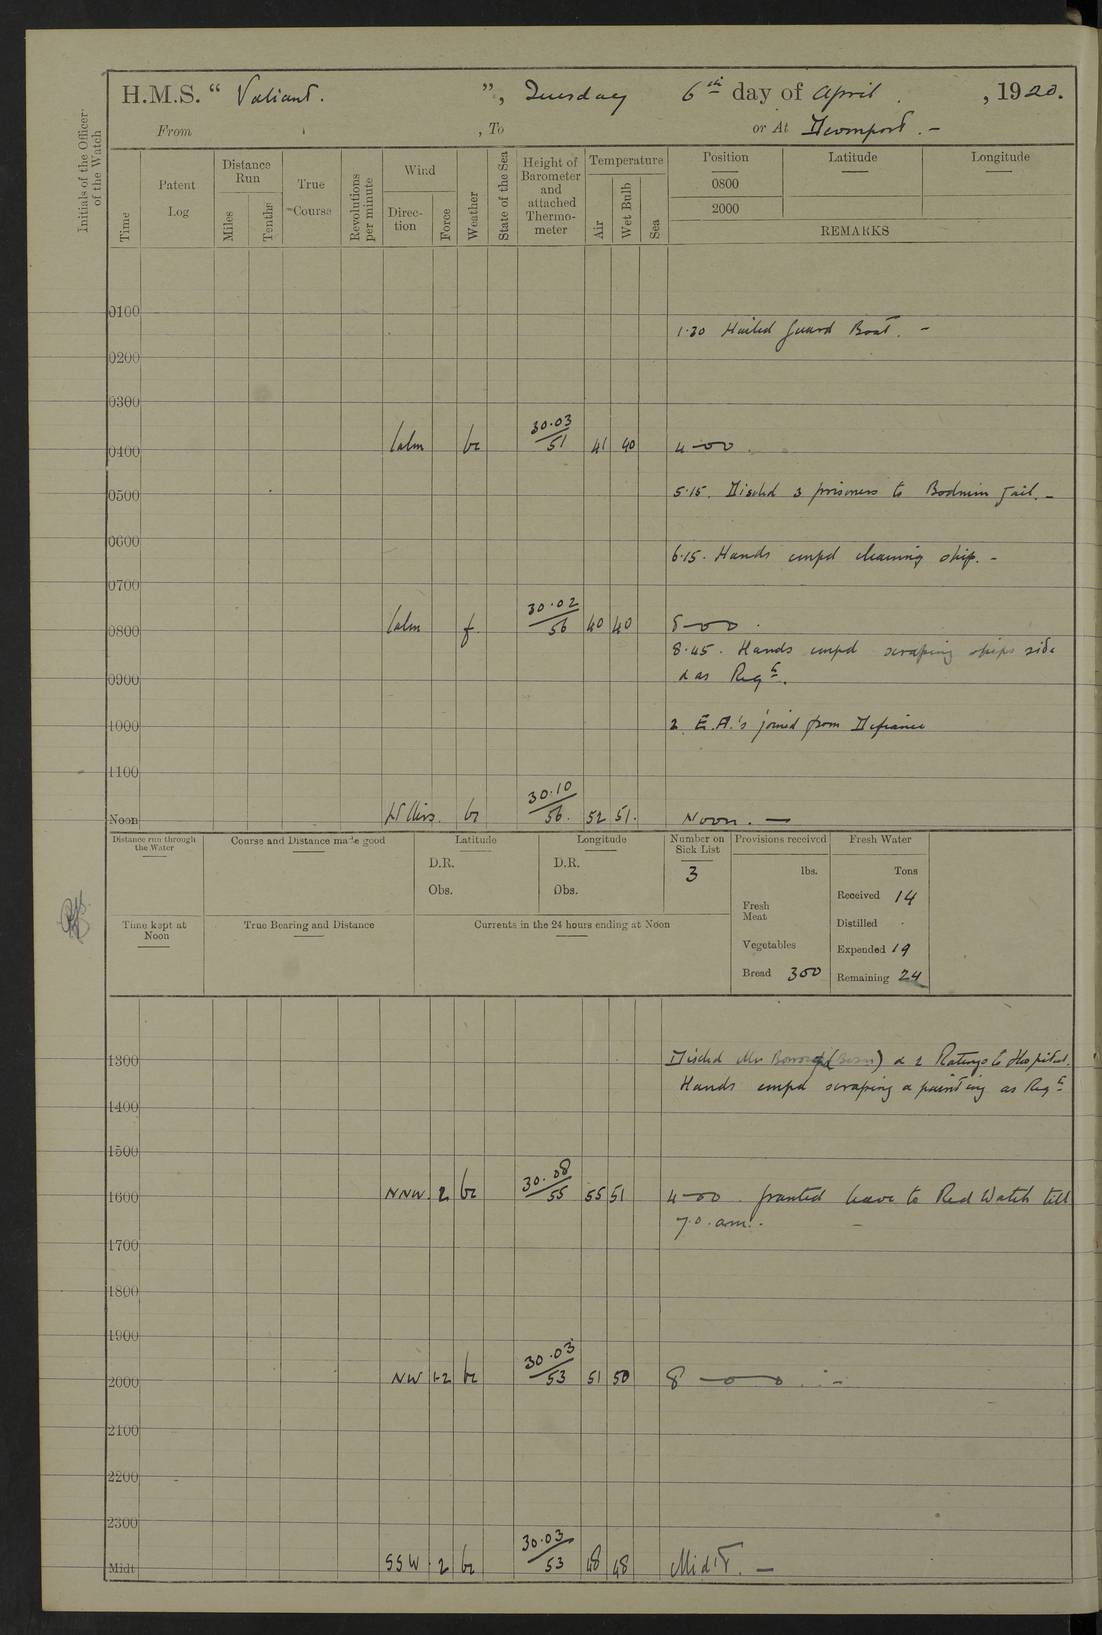 H.M.S. “ Valiant. ”, Tuesday 6th day of April , 1920.
From , To or At Devonport. -
Initials of the Officer of the Watch
Time
Patent Log
Distance Run
Miles
Tenths
True Course
Revolutions per minute
Wind
Direction
Force
Weather
State of the Sea
Height of Barometer and attached Thermometer
Temperature
Air
Wet Bulb
Sea
Position Latitude Longitude
0800
2000
REMARKS
0100
1.30 Hailed Guard Boat. -
0200
0300
0400 Calm bc 30.03/51 41 40 4-00.
0500 5.15. Disched 3 prisoners to Bodmin Jail. -
0600 6.15. Hands empd cleaning ship. -
0700
0800 Calm f 30.02/56 40 40 8-00.
8.45. Hands empd scraping ships side
0900 & as Reqd.
1000 2 E.A.'s joined from Defiance
1100
Noon Lt Airs. bc 30.10/56. 52 51. Noon. -
Distance run through the Water
Course and Distance made good
Latitude
D.R.
Obs.
Longitude
D.R.
Obs.
Number on Sick List
3
Provisions received
lbs.
Fresh Meat
Vegetables
Bread 300
Fresh Water
Tons
Received 14
Distilled .
Expended 19
Remaining 24
Time kept at Noon
True Bearing and Distance
Currents in the 24 hours ending at Noon
1300 Disched Mr (Bosn) & 2 Ratings to Hospital.
Hands empd scraping & painting as Reqd
1400
1500
1600 NNW. 2 bc 30.08/55 55 51 4-00. Granted leave to Red Watch till
7.0. am. -
1700
1800
1900
2000 NW 1-2 bc 30.03/53 51 50 8-00. -
2100
2200
2300
Midt SSW. 2 bc 30.03/53 48 48 Midt. -